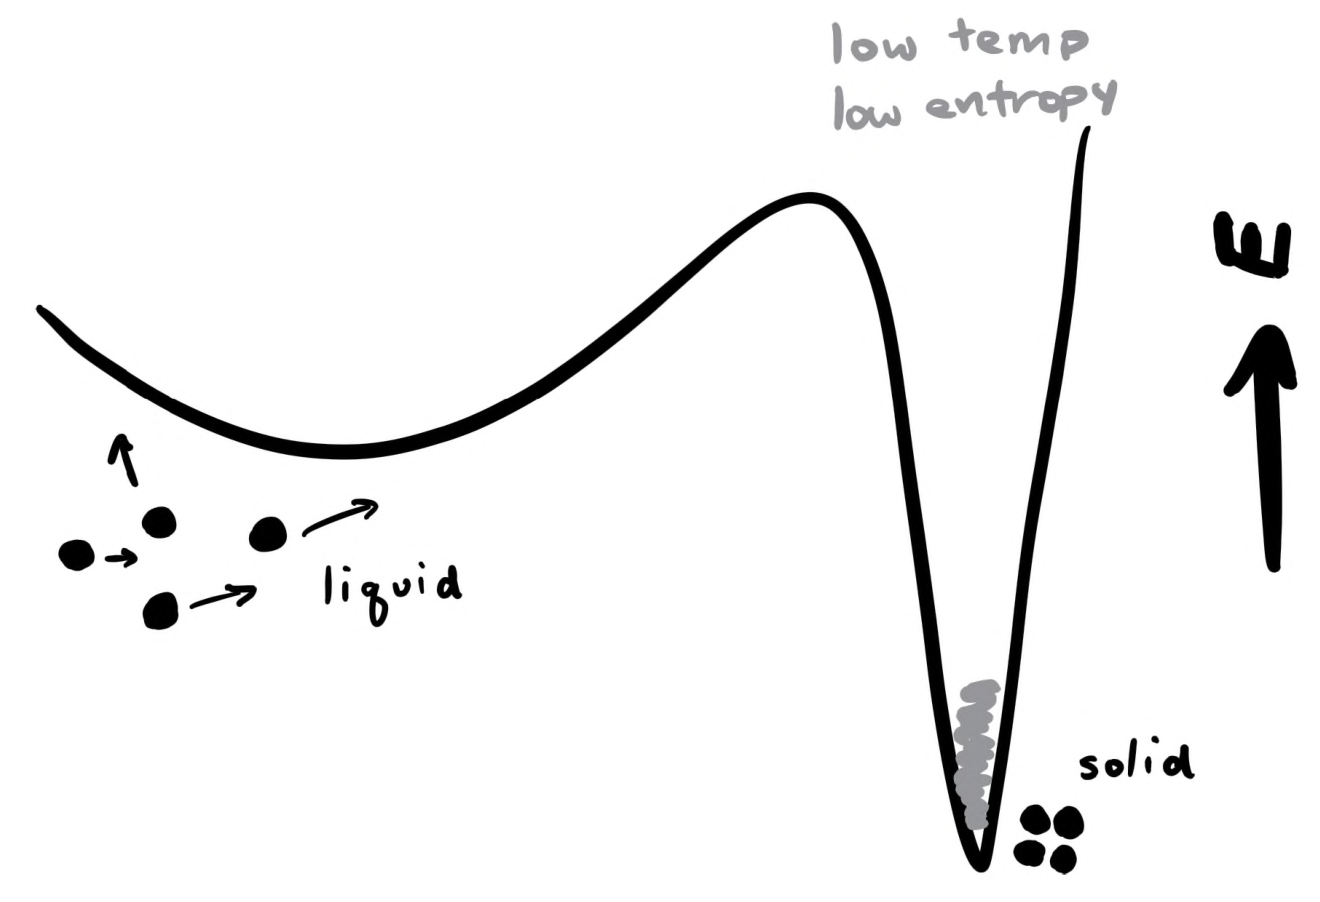 low temp
low entropy
E
liquid
solid